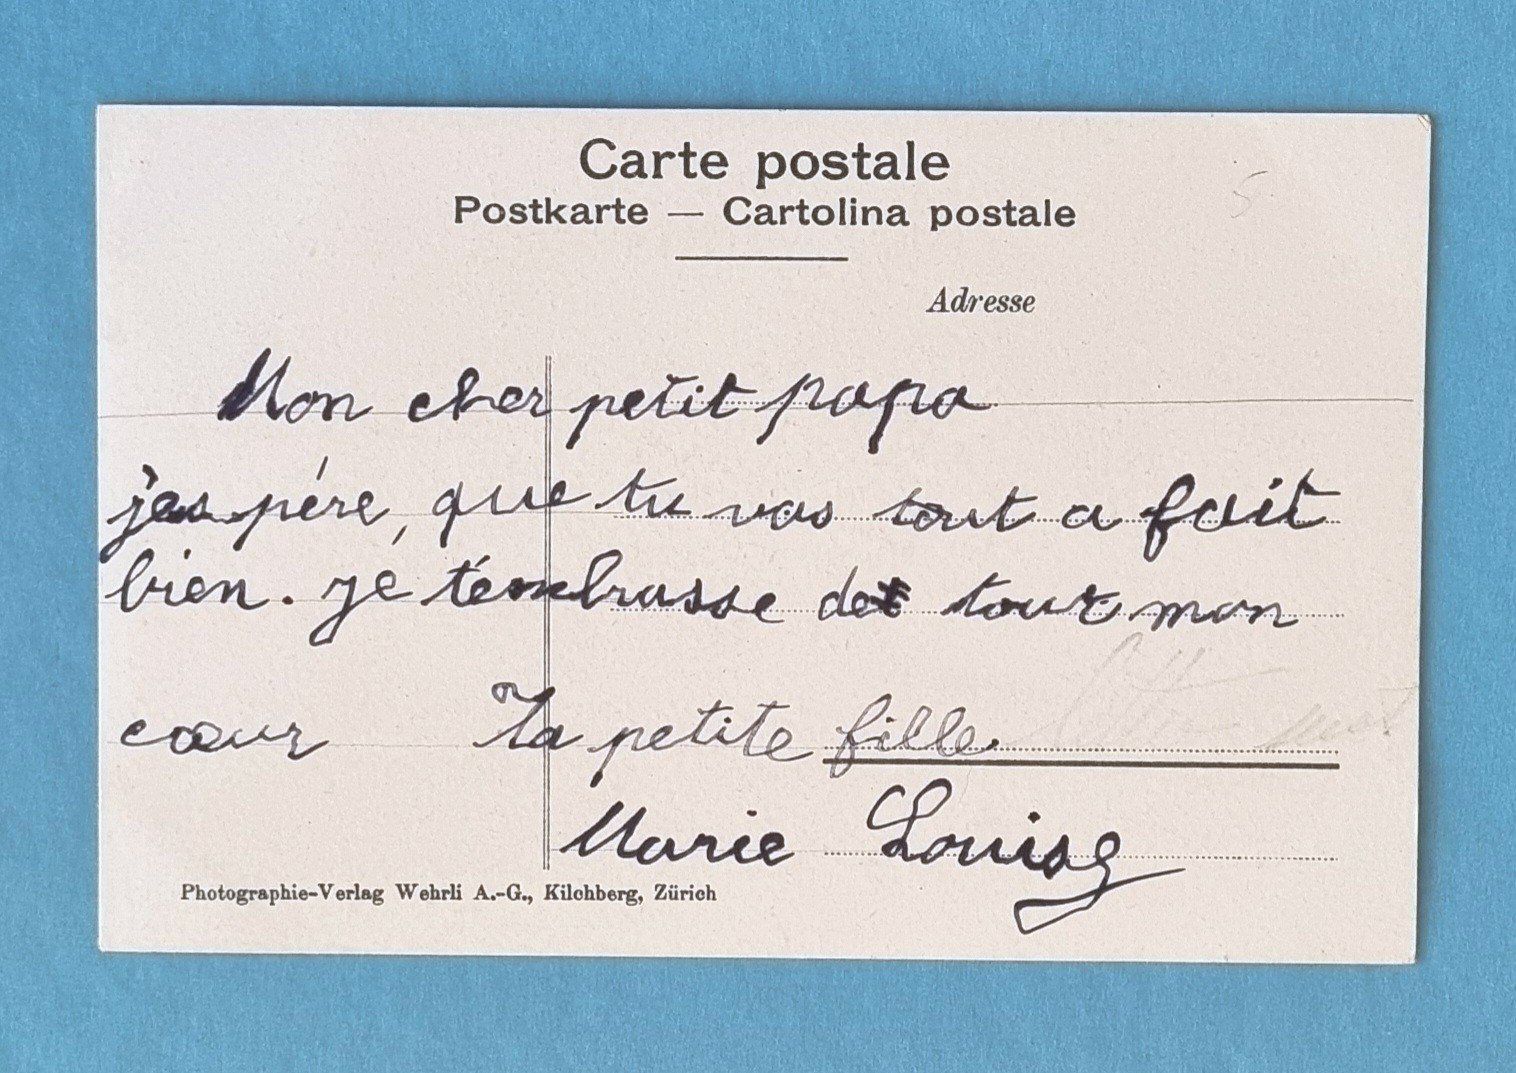 Carte postale
Postkarte — Cartolina postale
5
Adresse
Mon cher petit papa
jes père, que tu vas tout a fait
bien. je t'embrasse de tout mon
cœur Ta petite fille.
Marie Louise
Photographie-Verlag Wehrli A.-G., Kilchberg, Zürich